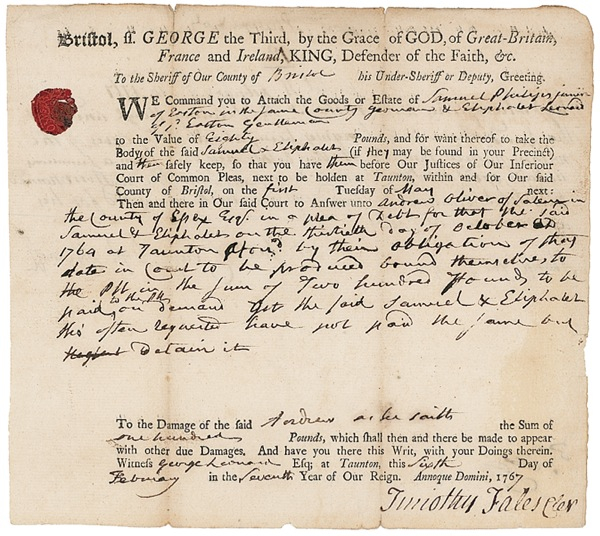 Bristol, ſſ. GEORGE the Third, by the Grace of GOD, of Great-Britain,
France and Ireland, KING, Defender of the Faith, &c.
To the Sheriff of Our County of Bristol his Under-Sheriff or Deputy, Greeting.
WE Command you to Attach the Goods or Eſtate of Samuel Philips junior
of Easton in the same County yeoman & Eliphalet Leonard
of sd. Easton Gentleman
to the Value of Eighty Pounds, and for want thereof to take the
Body of the ſaid Samuel & Eliphalet (if they may be found in your Precinct)
and them ſafely keep, ſo that you have them before Our Juſtices of Our Inferiour
Court of Common Pleas, next to be holden at Taunton, within and for Our ſaid
County of Bristol, on the first Tueſday of May next:
Then and there in Our ſaid Court to Anſwer unto Andrew Oliver of Salem in
the County of Essex Esqr. in a plea of Debt for that the said
Samuel & Eliphalet on the thirtieth day of October AD
1764 at Taunton aforesd. by their obligation of that
date in Court to be produced bound themselves to
the Plt. in the sum of Two hundred Pounds to be
paid to the Plt. on demand Yet the said Samuel & Eliphalet
tho' often requested have not paid the same but
neglect Detain it
To the Damage of the ſaid Andrew as he saith the Sum of
one hundred Pounds, which ſhall then and there be made to appear
with other due Damages. And have you there this Writ, with your Doings therein.
Witneſs George Leonard Eſq; at Taunton, this Sixth Day of
February in the Seventh Year of Our Reign. Annoque Domini, 1767
Timothy Fales Cler